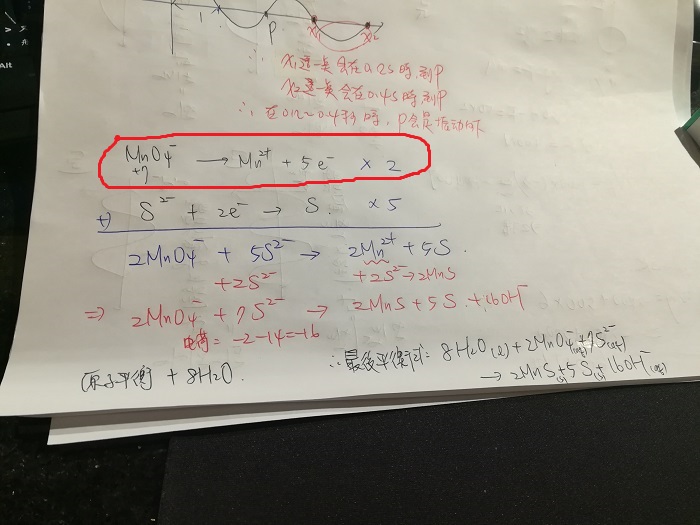 1 P x₁ x₂
∴ x₁這一點會在0.2s時到P
x₂這一點會在0.4s時到P
∴ 在0.2~0.4秒時，P會是振動的
MnO₄⁻ → Mn²⁺ + 5e⁻ × 2
+7
+) S²⁻ + 2e⁻ → S. × 5
2MnO₄⁻ + 5S²⁻ → 2Mn²⁺ + 5S.
+2S²⁻ +2S²⁻→2MnS
⇒ 2MnO₄⁻ + 7S²⁻ → 2MnS + 5S + 16OH⁻
電荷 = -2-14=-16
原子平衡 + 8H₂O.
∴最後平衡式: 8H₂O(l) + 2MnO₄⁻(aq) + 7S²⁻(aq)
→ 2MnS(s) + 5S(s) + 16OH⁻(aq)